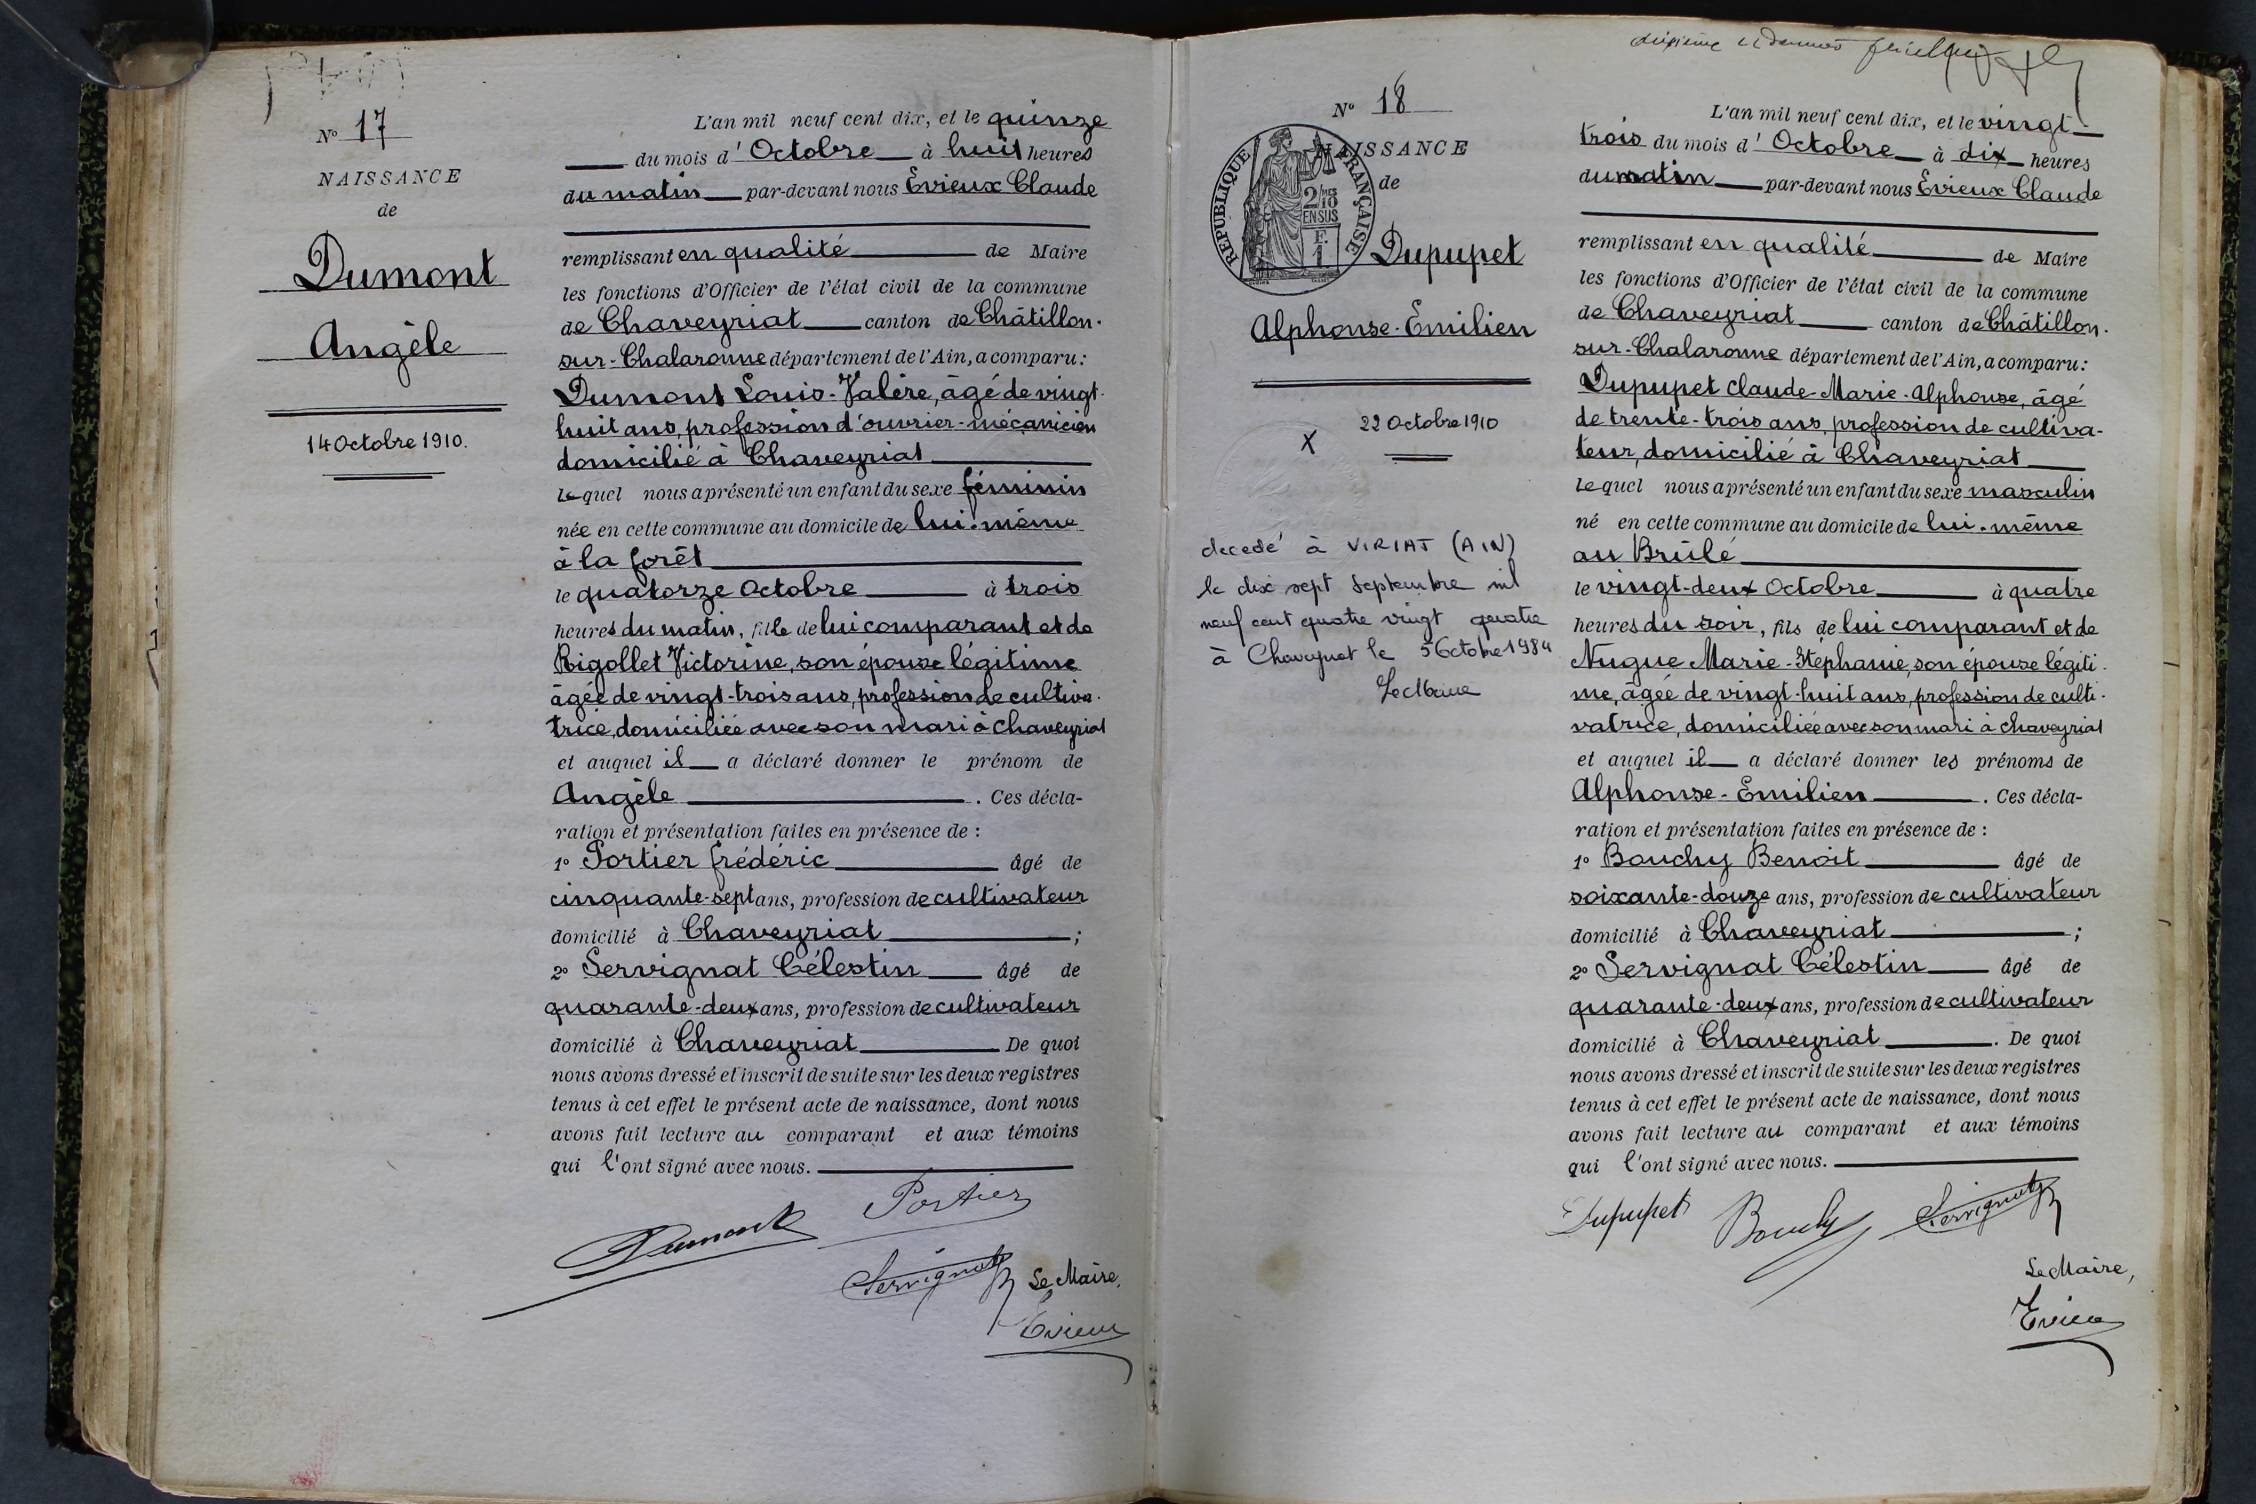 N° 17
NAISSANCE
de
Dumont
Angèle
14 Octobre 1910.
L'an mil neuf cent dix, et le quinze
du mois d'Octobre à huit heures
du matin par-devant nous Evieux Claude
remplissant en qualité de Maire
les fonctions d'Officier de l'état civil de la commune
de Chaveyriat canton de Châtillon-
sur-Chalaronne département de l'Ain, a comparu:
Dumont Louis-Valère, âgé de vingt-
huit ans, profession d'ouvrier-mécanicien
domicilié à Chaveyriat
lequel nous a présenté un enfant du sexe féminin
née en cette commune au domicile de lui-même
à la forêt
le quatorze Octobre à trois
heures du matin, fille de lui comparant et de
Rigollet Victorine, son épouse légitime
âgée de vingt-trois ans, profession de cultiva-
trice, domiciliée avec son mari à Chaveyriat
et auquel il a déclaré donner le prénom de
Angèle. Ces décla-
ration et présentation faites en présence de :
1° Portier frédéric âgé de
cinquante-sept ans, profession de cultivateur
domicilié à Chaveyriat ;
2° Servignat Célestin âgé de
quarante-deux ans, profession de cultivateur
domicilié à Chaveyriat De quoi
nous avons dressé et inscrit de suite sur les deux registres
tenus à cet effet le présent acte de naissance, dont nous
avons fait lecture au comparant et aux témoins
qui l'ont signé avec nous.
Dumont Portier
Servignat Le Maire,
Evieux
N° 18
NAISSANCE
de
RÉPUBLIQUE FRANÇAISE
2/10 MES
EN SUS
F.
1
Dupupet
Alphonse-Emilien
22 Octobre 1910
X
décédé à VIRIAT (AIN)
le dix sept Septembre mil
neuf cent quatre vingt quatre
à Chaveyriat le 5 Octobre 1984
Le Maire
L'an mil neuf cent dix, et le vingt-
trois du mois d'Octobre à dix heures
du matin par-devant nous Evieux Claude
remplissant en qualité de Maire
les fonctions d'Officier de l'état civil de la commune
de Chaveyriat canton de Châtillon-
sur-Chalaronne département de l'Ain, a comparu:
Dupupet Claude-Marie-Alphonse, âgé
de trente-trois ans, profession de cultiva-
teur, domicilié à Chaveyriat
lequel nous a présenté un enfant du sexe masculin
né en cette commune au domicile de lui-même
au Brûlé
le vingt-deux Octobre à quatre
heures du soir, fils de lui comparant et de
Nugue Marie-Stéphanie, son épouse légiti-
me, âgée de vingt-huit ans, profession de culti-
vatrice, domiciliée avec son mari à Chaveyriat
et auquel il a déclaré donner les prénoms de
Alphonse-Emilien. Ces décla-
ration et présentation faites en présence de :
1° Bouchy Benoit âgé de
soixante-douze ans, profession de cultivateur
domicilié à Chaveyriat ;
2° Servignat Célestin âgé de
quarante-deux ans, profession de cultivateur
domicilié à Chaveyriat. De quoi
nous avons dressé et inscrit de suite sur les deux registres
tenus à cet effet le présent acte de naissance, dont nous
avons fait lecture au comparant et aux témoins
qui l'ont signé avec nous.
Dupupet Bouchy Servignat
Le Maire,
Evieux